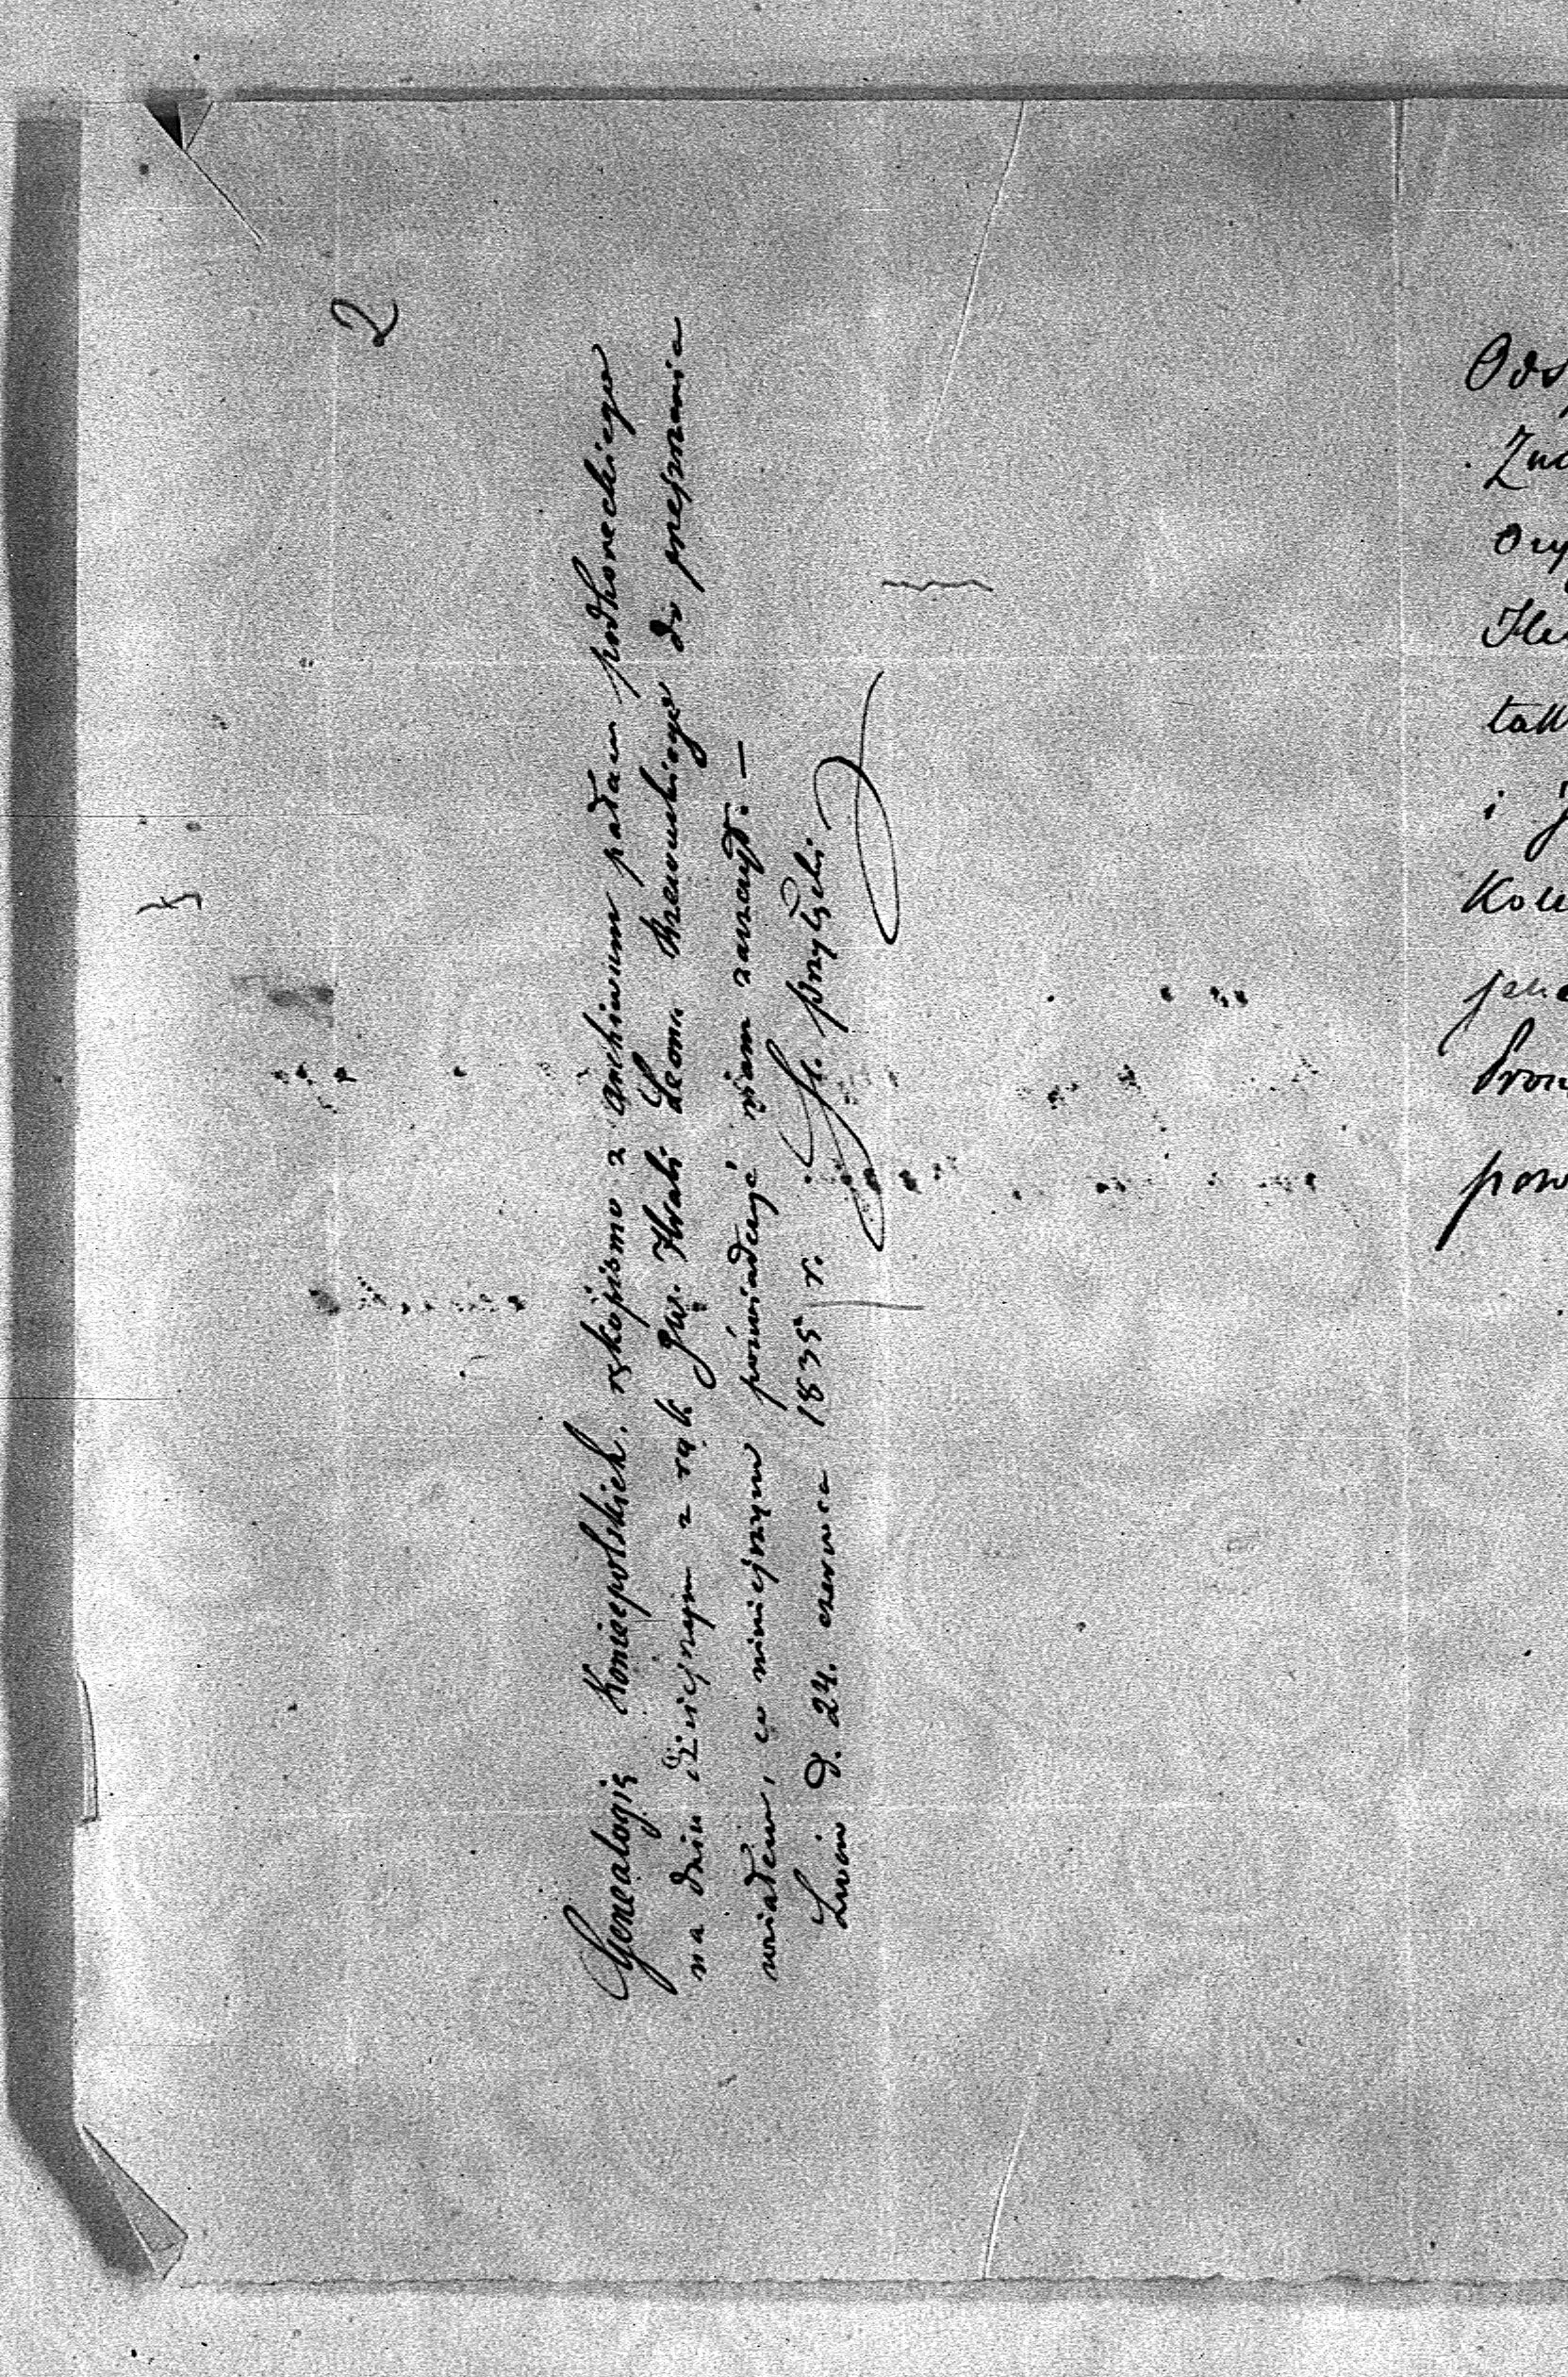 2
Genealogię Koniecpolskich, rękopismo z archiwum pałacu podhoreckiego
na dniu dzisiejszym z rąk JW. Hrabi Leona Rzewuskiego do przejrzenia
wziąłem, co niniejszym poświadczyć mam zaszczyt. —
Lwów d. 24. czerwca 1835 r. St. Przyłęcki
Ods
Zna
ory
Hle
tak
i j
Kole
jene
Pron
pow